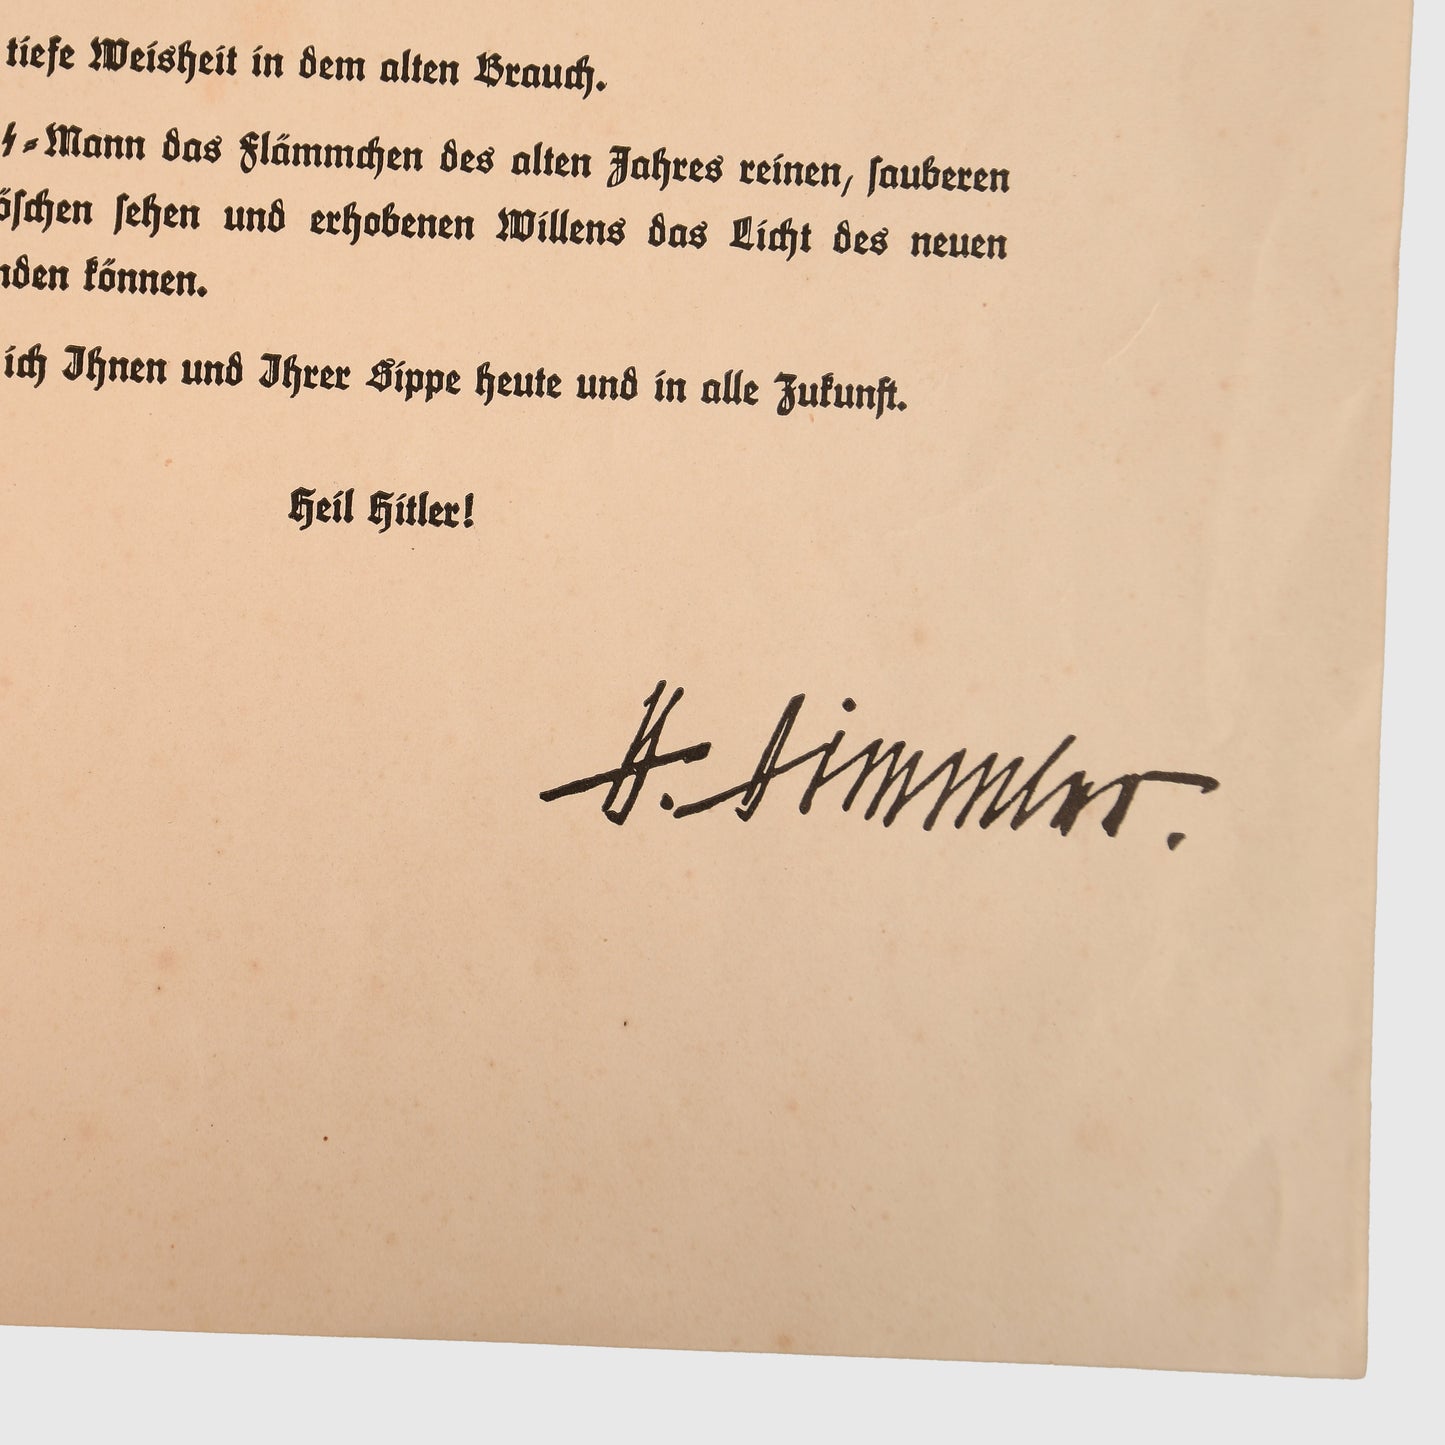 tiefe Weisheit in dem alten Brauch.
ϟ-Mann das Flämmchen des alten Jahres reinen, sauberen
öschen sehen und erhobenen Willens das Licht des neuen
nden können.
ich Ihnen und Ihrer Sippe heute und in alle Zukunft.
Heil Hitler!
H. Himmler.